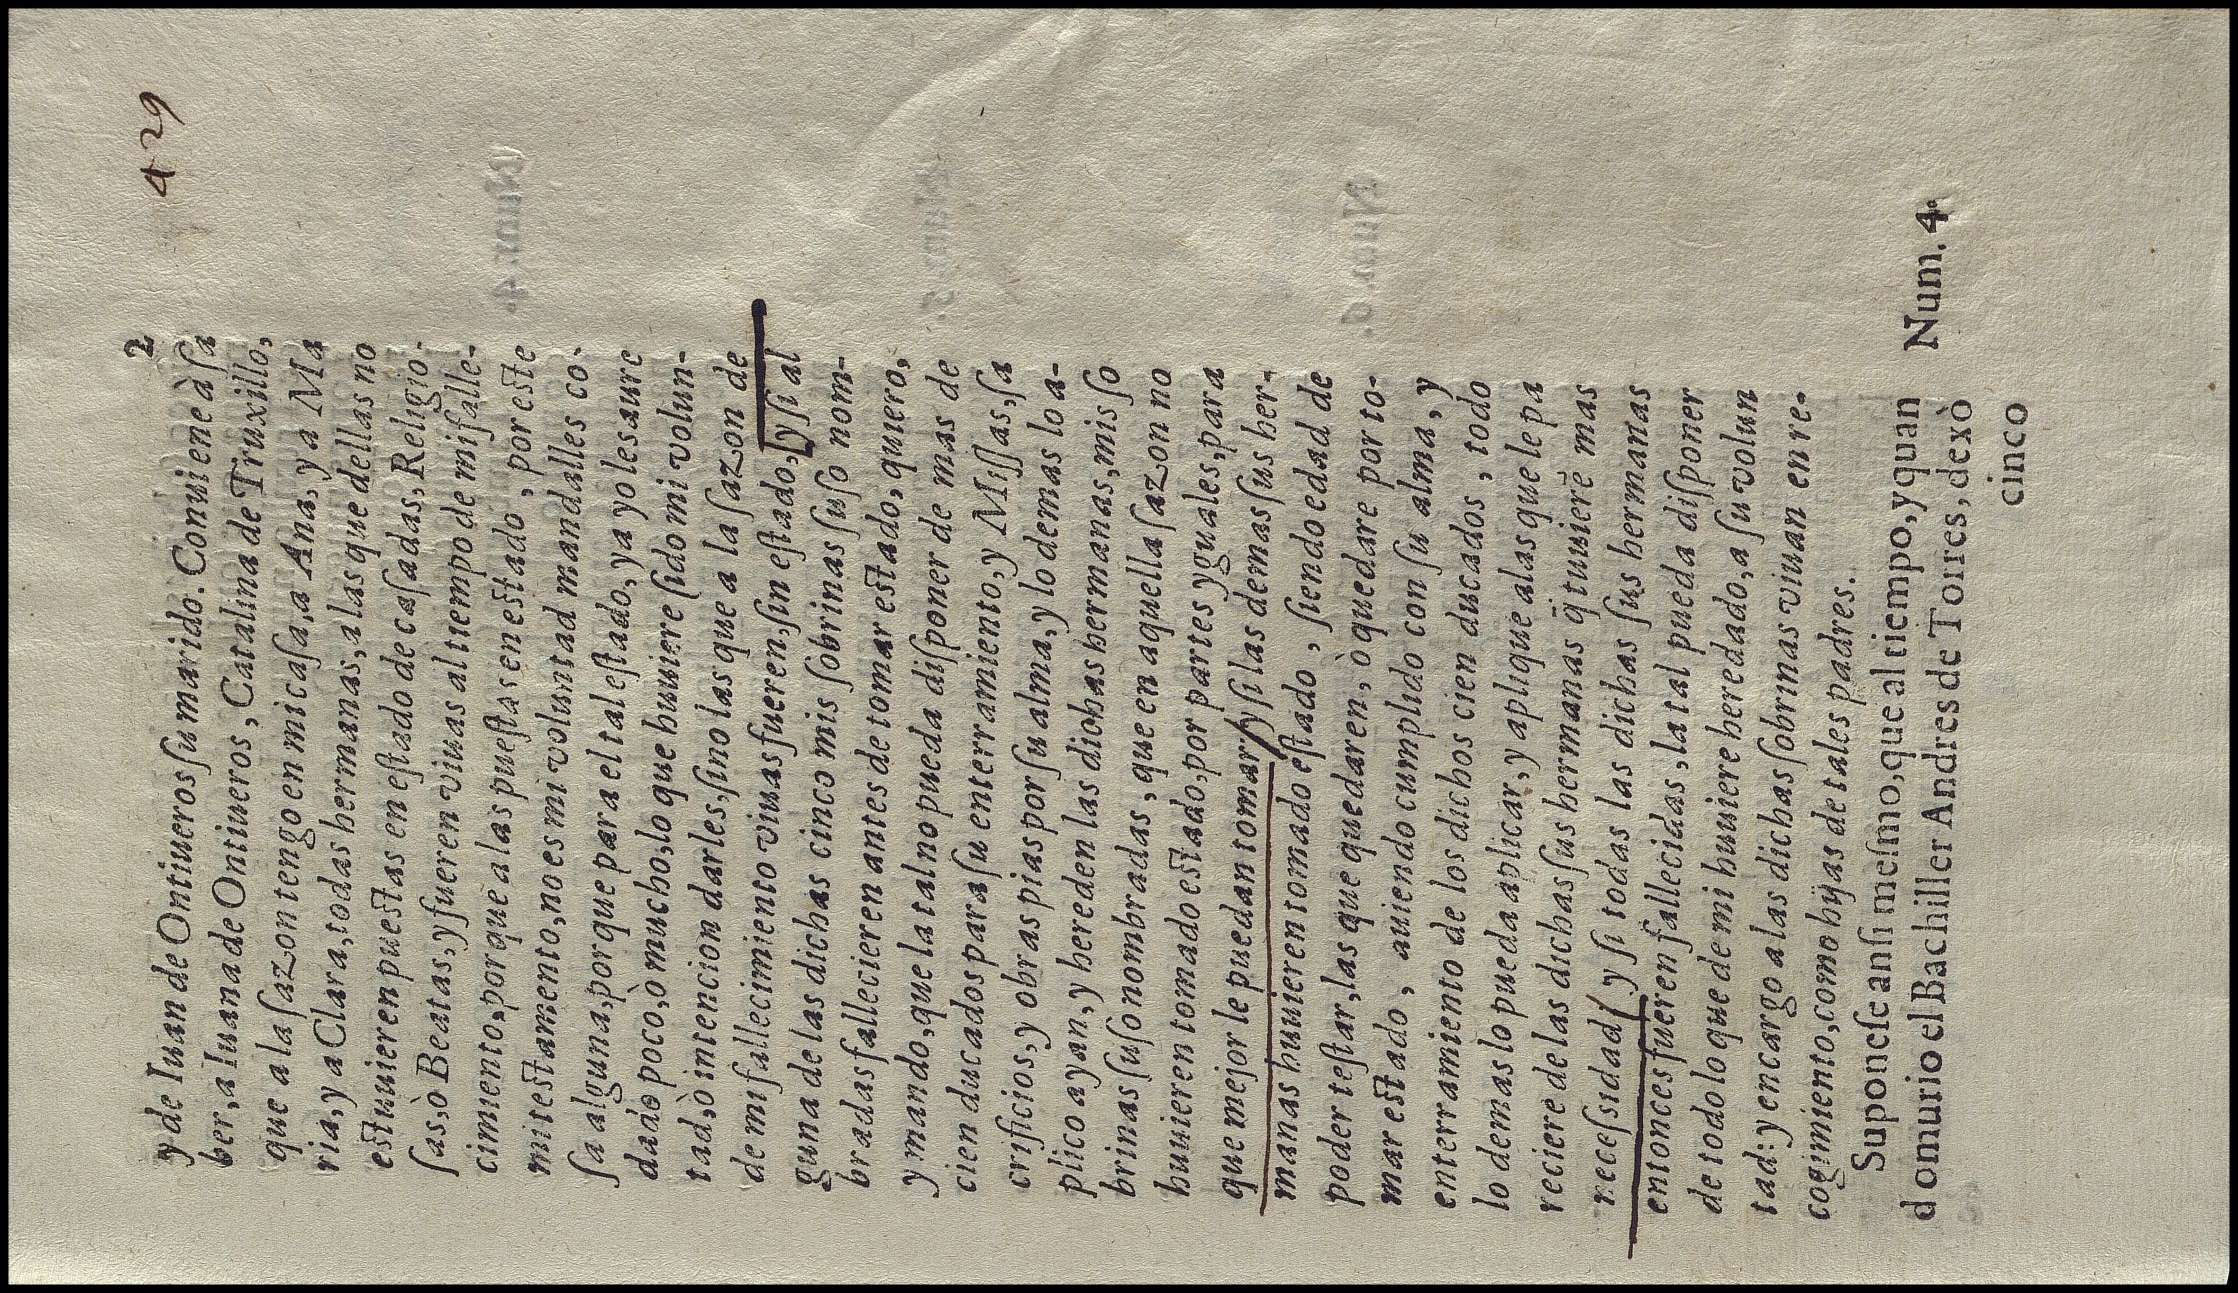 429
2
y de Iuan de Ontiueros ſu marido. Conuiene à ſa
ber, a Iuana de Ontiueros, Catalina de Truxillo,
que a la ſazon tengo en mi caſa, a Ana, y a Ma
ria, y a Clara, todas hermanas, a las que dellas no
eſtuuieren pueſtas en eſtado de caſadas, Religio-
ſas, ò Beatas, y fueren viuas al tiempo de mi falle-
cimiento, porque a las pueſtas en eſtado, por eſte
mi teſtamento, no es mi voluntad mandalles co-
ſa alguna, porque para el tal eſtado, ya yo les aure
dado poco, ò mucho, lo que huuiere ſido mi volun-
tad, ò intencion darles, ſino las que a la ſazon de
de mi fallecimiento viuas fueren, ſin eſtado, [y ſi al
guna de las dichas cinco mis ſobrinas ſuſo nom-
bradas fallecieren antes de tomar eſtado, quiero,
y mando, que la tal no pueda diſponer de mas de
cien ducados para ſu enterramiento, y Miſſas, ſa
crificios, y obras pias por ſu alma, y lo demas lo a-
plico ayan, y hereden las dichas hermanas, mis ſo
brinas ſuſo nombradas, que en aquella ſazon no
huuieren tomado eſtado, por partes yguales, para
que mejor le puedan tomar/ y ſi las demas ſus her-
manas huuieren tomado eſtado, ſiendo edad de
poder teſtar, las que quedaren, ò quedare por to-
mar eſtado, auiendo cumplido con ſu alma, y
enterramiento de los dichos cien ducados, todo
lo demas lo pueda aplicar, y aplique a las que le pa
reciere de las dichas ſus hermanas q̃ tuuierẽ mas
neceſsidad/ y ſi todas las dichas ſus hermanas
entonces fueren fallecidas, la tal pueda diſponer
de todo lo que de mi huuiere heredado, a ſu volun
tad: y encargo a las dichas ſobrinas viuan en re-
cogimiento, como hijas de tales padres.
Suponeſe anſi meſmo, que al tiempo, y quan
do murio el Bachiller Andres de Torres, dexò
Num. 4.
cinco